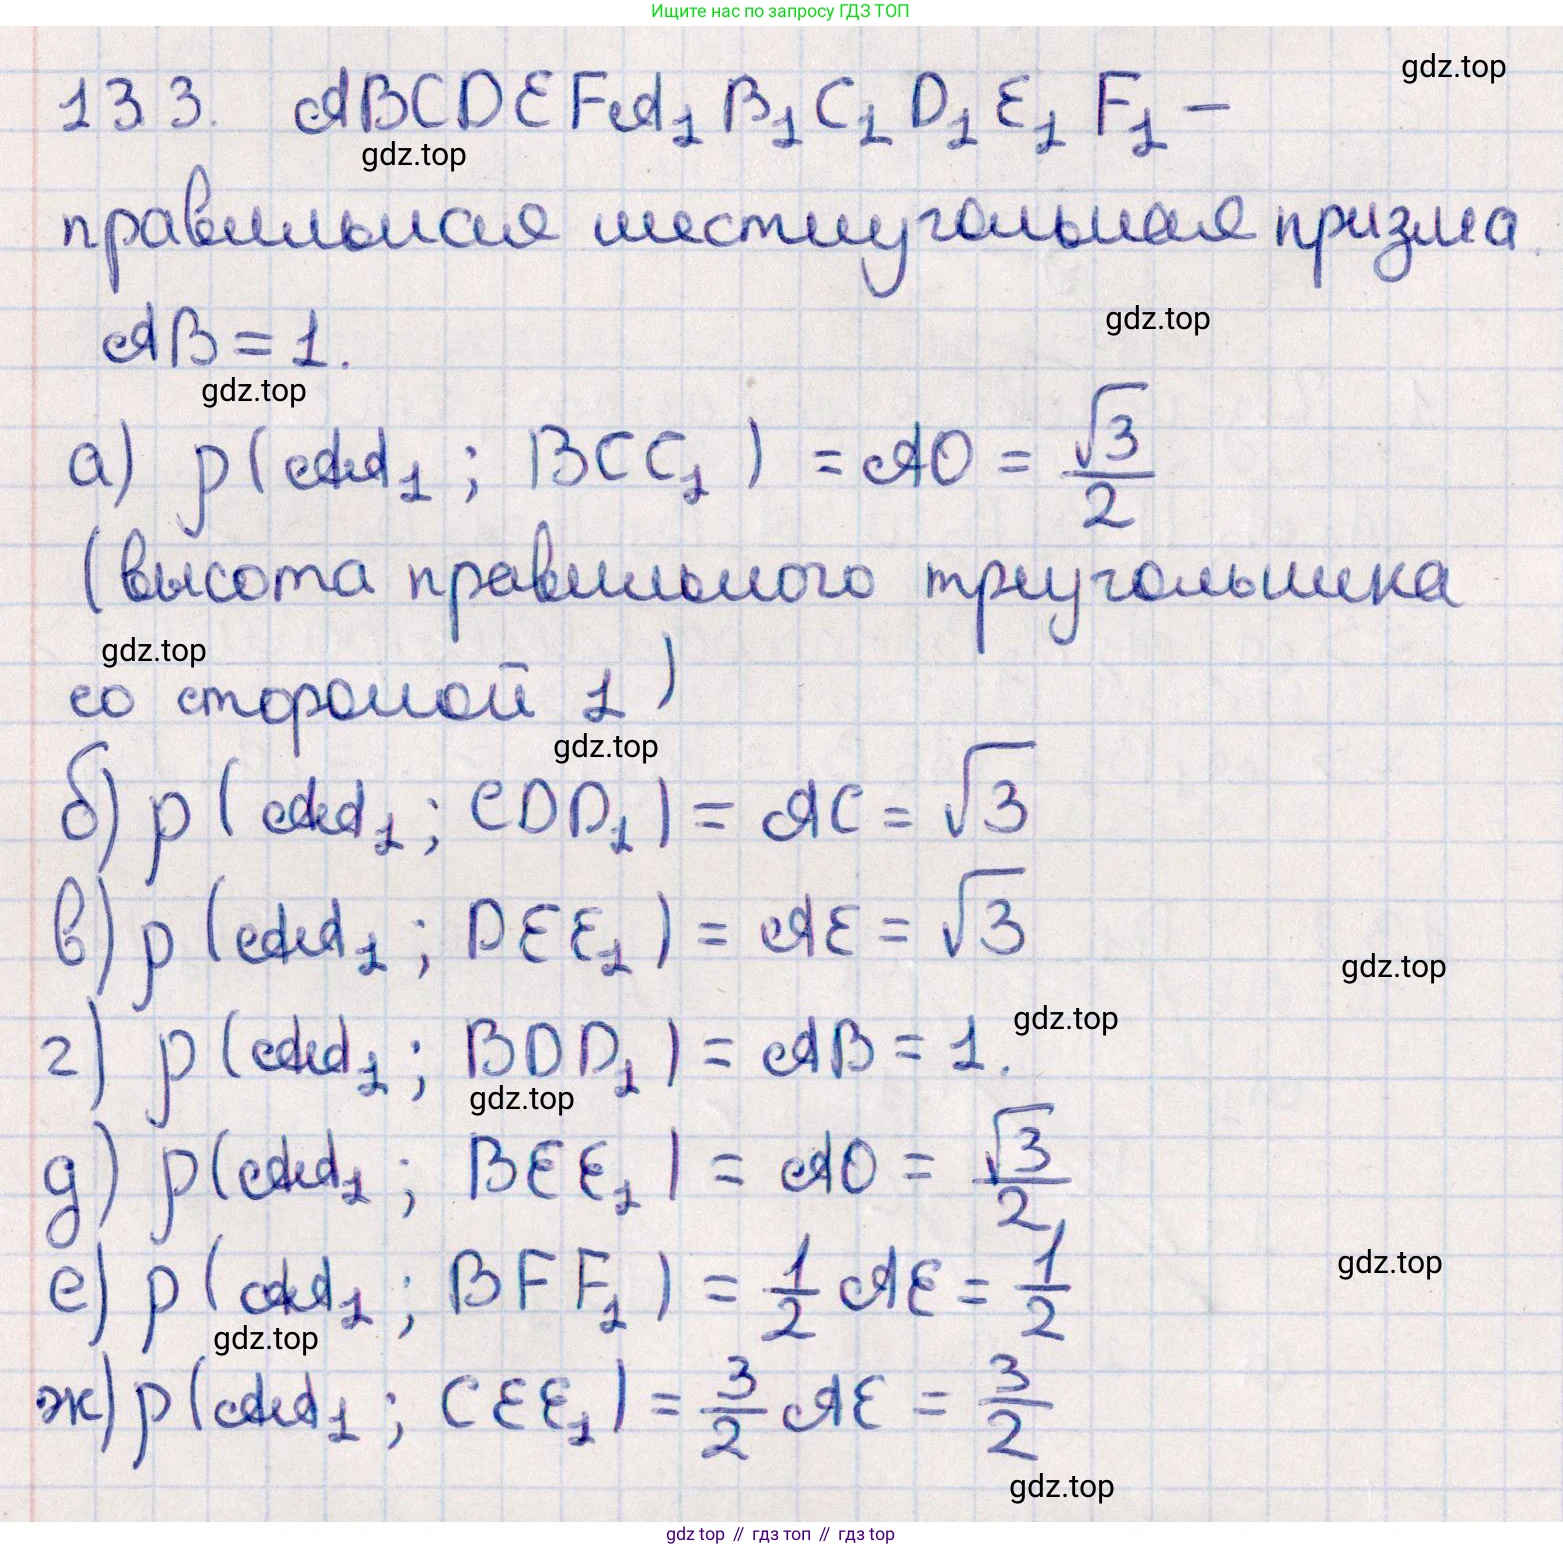 Ищите нас по запросу ГДЗ ТОП
gdz.top
13.3. ABCDEFA₁B₁C₁D₁E₁F₁ –
gdz.top
правильная шестиугольная призма
gdz.top
AB = 1.
gdz.top
а) p(AA₁; BCC₁) = AO = √3/2
(высота правильного треугольника
gdz.top
со стороной 1)
gdz.top
б) p(AA₁; CDD₁) = AC = √3
в) p(AA₁; DEE₁) = AE = √3
gdz.top
gdz.top
г) p(AA₁; BDD₁) = AB = 1.
gdz.top
д) p(AA₁; BEE₁) = AO = √3/2
gdz.top
е) p(AA₁; BFF₁) = 1/2 AE = 1/2
gdz.top
ж) p(AA₁; CEE₁) = 3/2 AE = 3/2
gdz.top
gdz top // гдз топ // гдз top